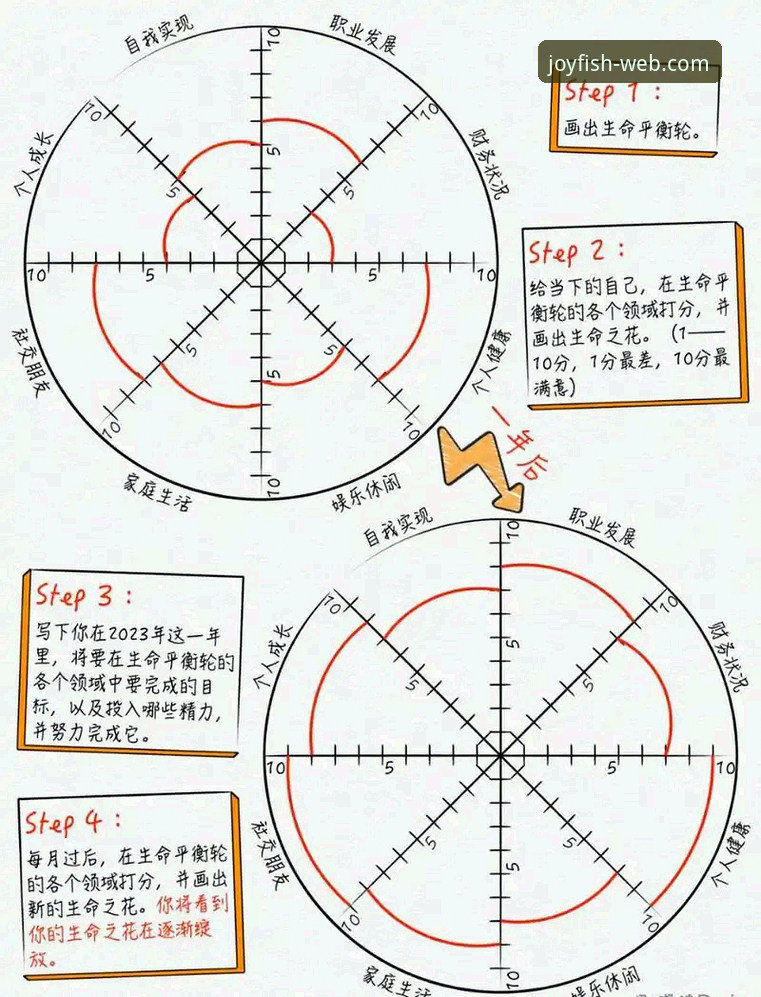 joyfish-web.com
自我实现
职业发展
财务状况
个人健康
娱乐休闲
家庭生活
社交朋友
个人成长
10
5
10
5
10
5
10
5
10
5
10
5
10
5
10
5
Step 1：
画出生命平衡轮。
Step 2：
给当下的自己，在生命平
衡轮的各个领域打分，并
画出生命之花。（1——
10分，1分最差，10分最
满意）
一年后
自我实现
职业发展
财务状况
个人健康
娱乐休闲
家庭生活
社交朋友
个人成长
10
5
10
5
10
5
10
5
10
5
10
5
10
5
10
5
Step 3：
写下你在2023年这一年
里，将要在生命平衡轮的
各个领域中要完成的目
标，以及投入哪些精力，
并努力完成它。
Step 4：
每月过后，在生命平衡轮
的各个领域打分，并画出
新的生命之花。你将看到
你的生命之花在逐渐绽
放。